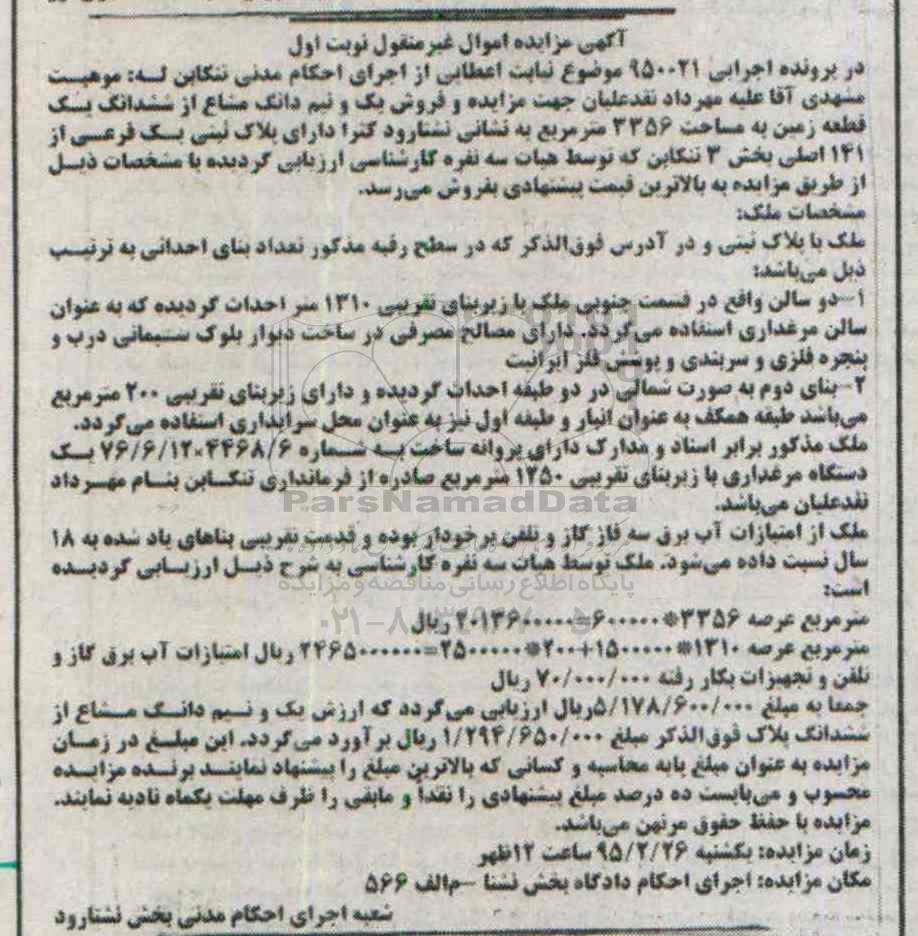 آگهی مزایده اموال غیرمنقول نوبت اول
در پرونده اجرایی ۹۵۰۰۲۱ موضوع نیابت اعطایی از اجرای احکام مدنی تنکابن له: موهبت
مشهدی آقا علیه مهرداد نقدعلیان جهت مزایده و فروش یک و نیم دانگ مشاع از ششدانگ یک
قطعه زمین به مساحت ۳۳۵۶ مترمربع به نشانی نشتارود کترا دارای پلاک ثبتی یک فرعی از
۱۴۱ اصلی بخش ۳ تنکابن که توسط هیات سه نفره کارشناسی ارزیابی گردیده با مشخصات ذیل
از طریق مزایده به بالاترین قیمت پیشنهادی بفروش می‌رسد.
مشخصات ملک:
ملک با پلاک ثبتی و در آدرس فوق‌الذکر که در سطح رقبه مذکور تعداد بنای احداثی به ترتیب
ذیل می‌باشد:
۱-دو سالن واقع در قسمت جنوبی ملک با زیربنای تقریبی ۱۳۱۰ متر احداث گردیده که به عنوان
سالن مرغداری استفاده می‌گردد. دارای مصالح مصرفی در ساخت دیوار بلوک سیمانی درب و
پنجره فلزی و سربندی و پوشش فلز ایرانیت
۲-بنای دوم به صورت شمالی در دو طبقه احداث گردیده و دارای زیربنای تقریبی ۲۰۰ مترمربع
می‌باشد طبقه همکف به عنوان انبار و طبقه اول نیز به عنوان محل سرایداری استفاده می‌گردد.
ملک مذکور برابر اسناد و مدارک دارای پروانه ساخت به شماره ۷۶/۶/۱۲×۴۴۶۸/۶ یک
دستگاه مرغداری با زیربنای تقریبی ۱۲۵۰ مترمربع صادره از فرمانداری تنکابن بنام مهرداد
نقدعلیان می‌باشد.
ParsNamadData
ملک از امتیازات آب برق سه فاز گاز و تلفن برخودار بوده و قدمت تقریبی بناهای یاد شده به ۱۸
سال نسبت داده می‌شود. ملک توسط هیات سه نفره کارشناسی به شرح ذیل ارزیابی گردیده
است:
پایگاه اطلاع رسانی مناقصه و مزایده
مترمربع عرصه ۳۳۵۶*۶۰۰۰۰۰=۲۰۱۳۶۰۰۰۰۰ ریال
مترمربع عرصه ۱۳۱۰*۱۵۰۰۰۰۰+۲۰۰*۲۵۰۰۰۰۰=۲۴۶۵۰۰۰۰۰۰ ریال امتیازات آب برق گاز و
تلفن و تجهیزات بکار رفته ۷۰/۰۰۰/۰۰۰ ریال
جمعا به مبلغ ۵/۱۷۸/۶۰۰/۰۰۰ریال ارزیابی می‌گردد که ارزش یک و نیم دانگ مشاع از
ششدانگ پلاک فوق‌الذکر مبلغ ۱/۲۹۴/۶۵۰/۰۰۰ ریال برآورد می‌گردد. این مبلغ در زمان
مزایده به عنوان مبلغ پایه محاسبه و کسانی که بالاترین مبلغ را پیشنهاد نمایند برنده مزایده
محسوب و می‌بایست ده درصد مبلغ پیشنهادی را نقداً و مابقی را ظرف مهلت یکماه تادیه نمایند.
مزایده با حفظ حقوق مرتهن می‌باشد.
زمان مزایده: یکشنبه ۹۵/۲/۲۶ ساعت ۱۲ظهر
مکان مزایده: اجرای احکام دادگاه بخش نشتا -م‌الف ۵۶۶
شعبه اجرای احکام مدنی بخش نشتارود